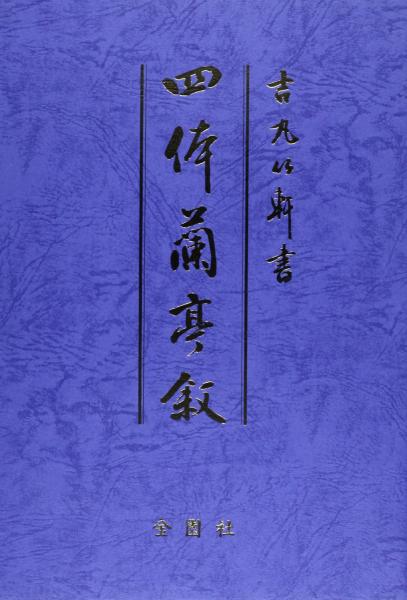 吉丸竹軒書
四体蘭亭叙
金園社